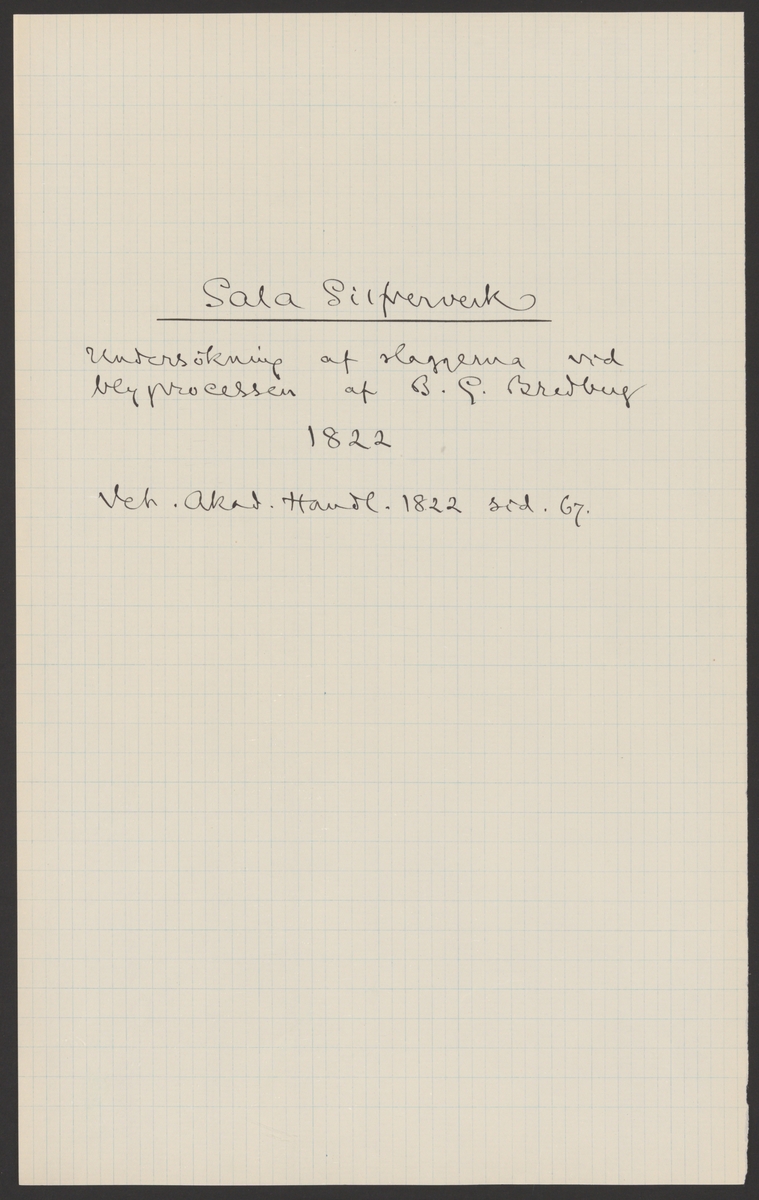 Sala Silfververk
Undersökning af slaggerna vid
blyprocessen af B. G. Bredberg
1822
Vet. Akad. Handl. 1822 sid. 67.